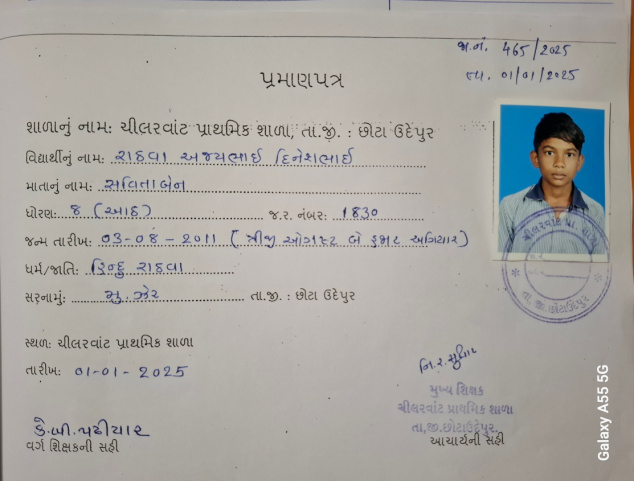 જા.નં. 465/2025
તા. 01/01/2025
પ્રમાણપત્ર
શાળાનું નામ: ચીલરવાંટ પ્રાથમિક શાળા, તા.જી. : છોટા ઉદેપુર
વિદ્યાર્થીનું નામ: રાઠવા અજયભાઈ દિનેશભાઈ
માતાનું નામ: સવિતાબેન
ધોરણ: 8 (આઠ) જ.ર. નંબર: 1830
જન્મ તારીખ: 03-08-2011 (ત્રીજી ઓગસ્ટ બે હજાર અગિયાર)
ધર્મ/જાતિ: હિન્દુ રાઠવા
સરનામું: મુ. ઝેર તા.જી. : છોટા ઉદેપુર
ચીલરવાંટ પ્રા. શાળા
તા.જી.છોટાઉદેપુર
સ્થળ: ચીલરવાંટ પ્રાથમિક શાળા
તારીખ: 01-01-2025
નિ.ર.સુથાર
મુખ્ય શિક્ષક
ચીલરવાંટ પ્રાથમિક શાળા
તા,જી.છોટાઉદેપુર.
આચાર્યની સહી
કે.બી.પઢીયાર
વર્ગ શિક્ષકની સહી
Galaxy A55 5G